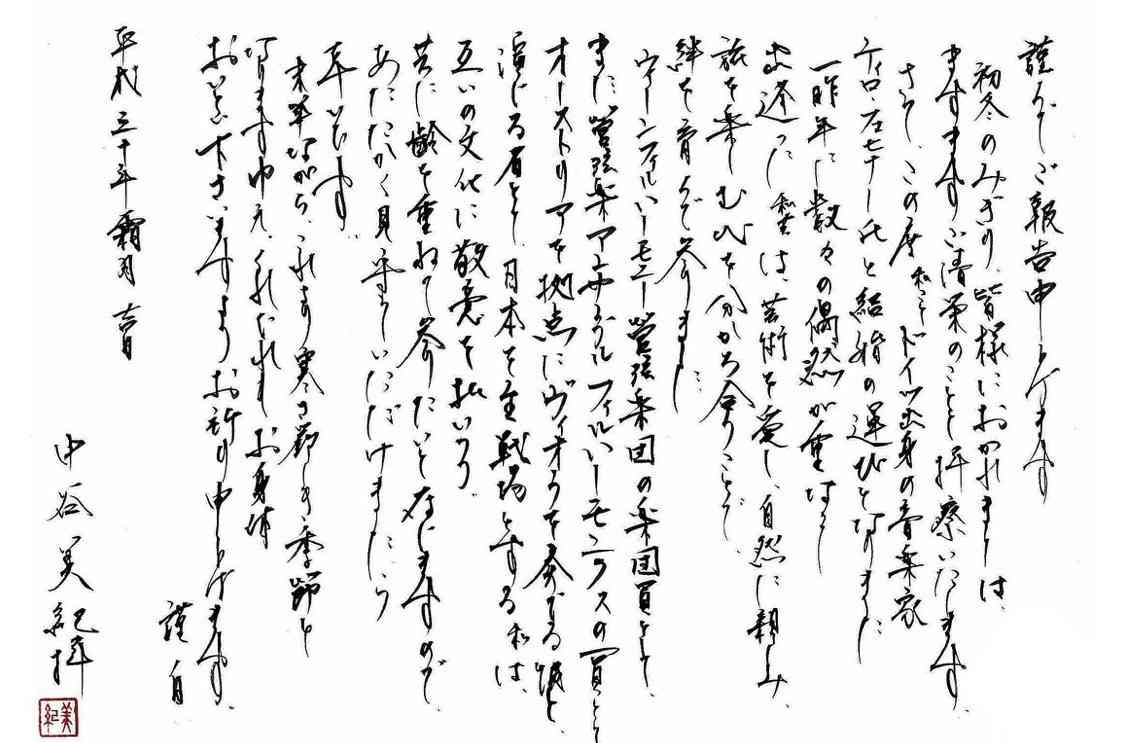 謹んでご報告申し上げます
初冬のみぎり、皆様におかれましては、
ますますご清栄のことと拝察いたします。
さて、この度私ことドイツ出身の音楽家
ティロ・フェヒナー氏と結婚の運びとなりました
一昨年に数々の偶然が重なって
出逢った私共は、芸術を愛し、自然に親しみ、
旅を楽しむ心を分かち合うことで、
絆を育んで参りました。
ウィーンフィルハーモニー管弦楽団の楽団員として、
また管弦楽アンサンブルフィルハーモニクスの一員として
オーストリアを拠点にヴィオラを奏でる彼と、
演じる者として日本を主戦場とする私は、
互いの文化に敬意を払いつつ
共に齢を重ねて参りたいと存じますので
あたたかく見守っていただけましたら
幸いです。
末筆ながら、これより寒さ厳しき季節と
なりますゆえ、くれぐれもお身体
おいとい下さいますようお祈り申し上げます。
謹白
平成三十年霜月吉日
中谷美紀拝
美紀